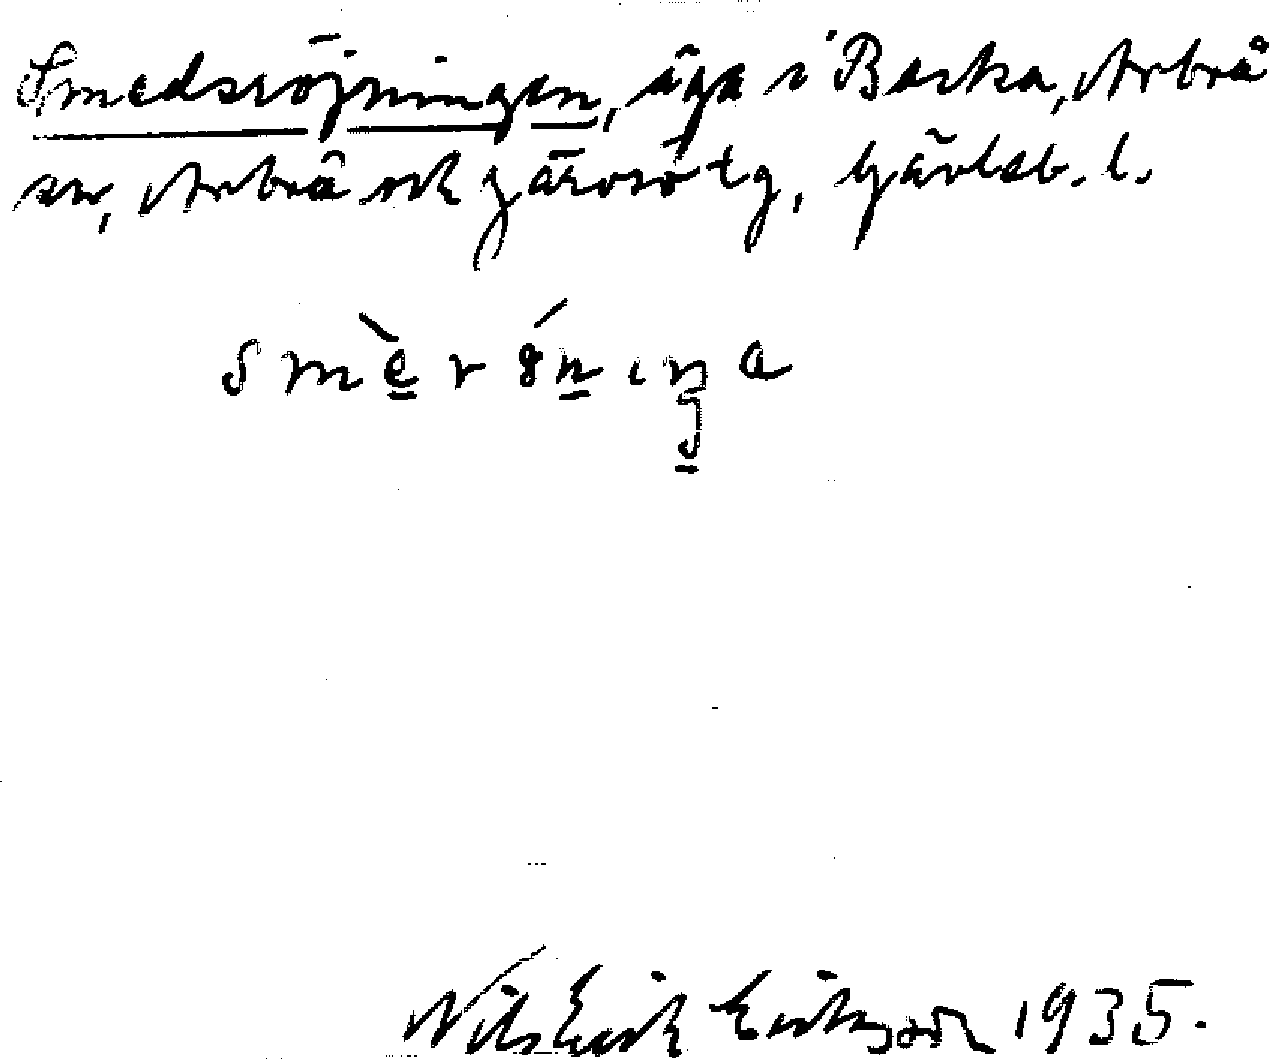 Smedsröjningen, äga i Backa, Arbrå
sn, Arbrå och Järvsö tg, Gävleb. l.
smèrö́niŋa
Nils Erik Eriksson 1935.